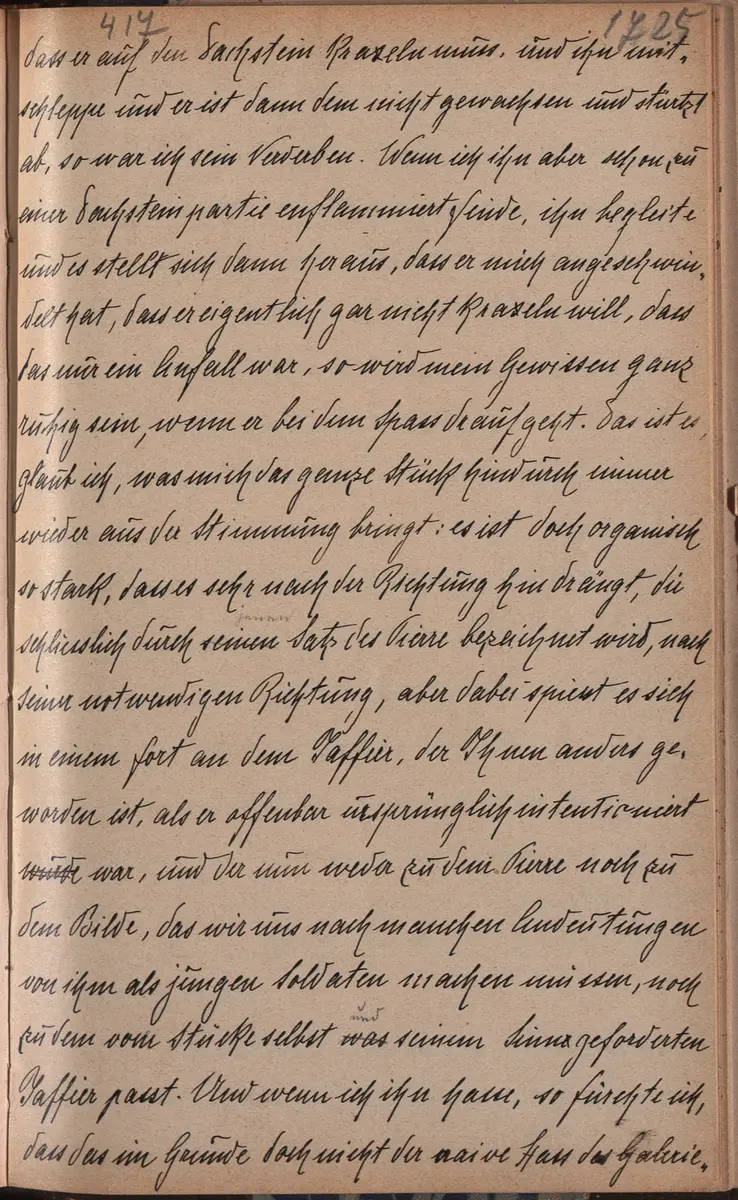 417 1725
dass er auf den Dachstein kraxeln muss. und ihn mit-
schleppe und er ist dann dem nicht gewachsen und stürtzt
ab, so war ich sein Verderben. Wenn ich ihn aber schon zu
einer Dachsteinpartie enflammiert finde, ihn begleite
und es stellt sich dann heraus, dass er mich angeschwin-
delt hat, dass er eigentlich gar nicht kraxeln will, dass
das nur ein Anfall war, so wird mein Gewissen ganz
ruhig sein, wenn er bei dem Spass draufgeht. Das ist es,
glaub ich, was mich das ganze Stück hindurch immer
wieder aus der Stimmung bringt: es ist doch organisch
so stark, dass es sehr nach der Richtung hindrängt, die
jenen
schliesslich durch seinen Satz des Pierre bezeichnet wird, nach
seiner notwendigen Richtung, aber dabei spiesst es sich
in einem fort an dem Jaffier, der Ihnen anders ge-
worden ist, als er offenbar ursprünglich intentioniert
wurde war, und der nun weder zu dem Pierre noch zu
dem Bilde, das wir uns nach manchen Andeutungen
von ihm als jungen Soldaten machen müssen, noch
und
zu dem vom Stücke selbst was seinem Sinne geforderten
Jaffier passt. Und wenn ich ihn hasse, so fürchte ich,
dass das im Grunde doch nicht der naive Hass des Galerie-